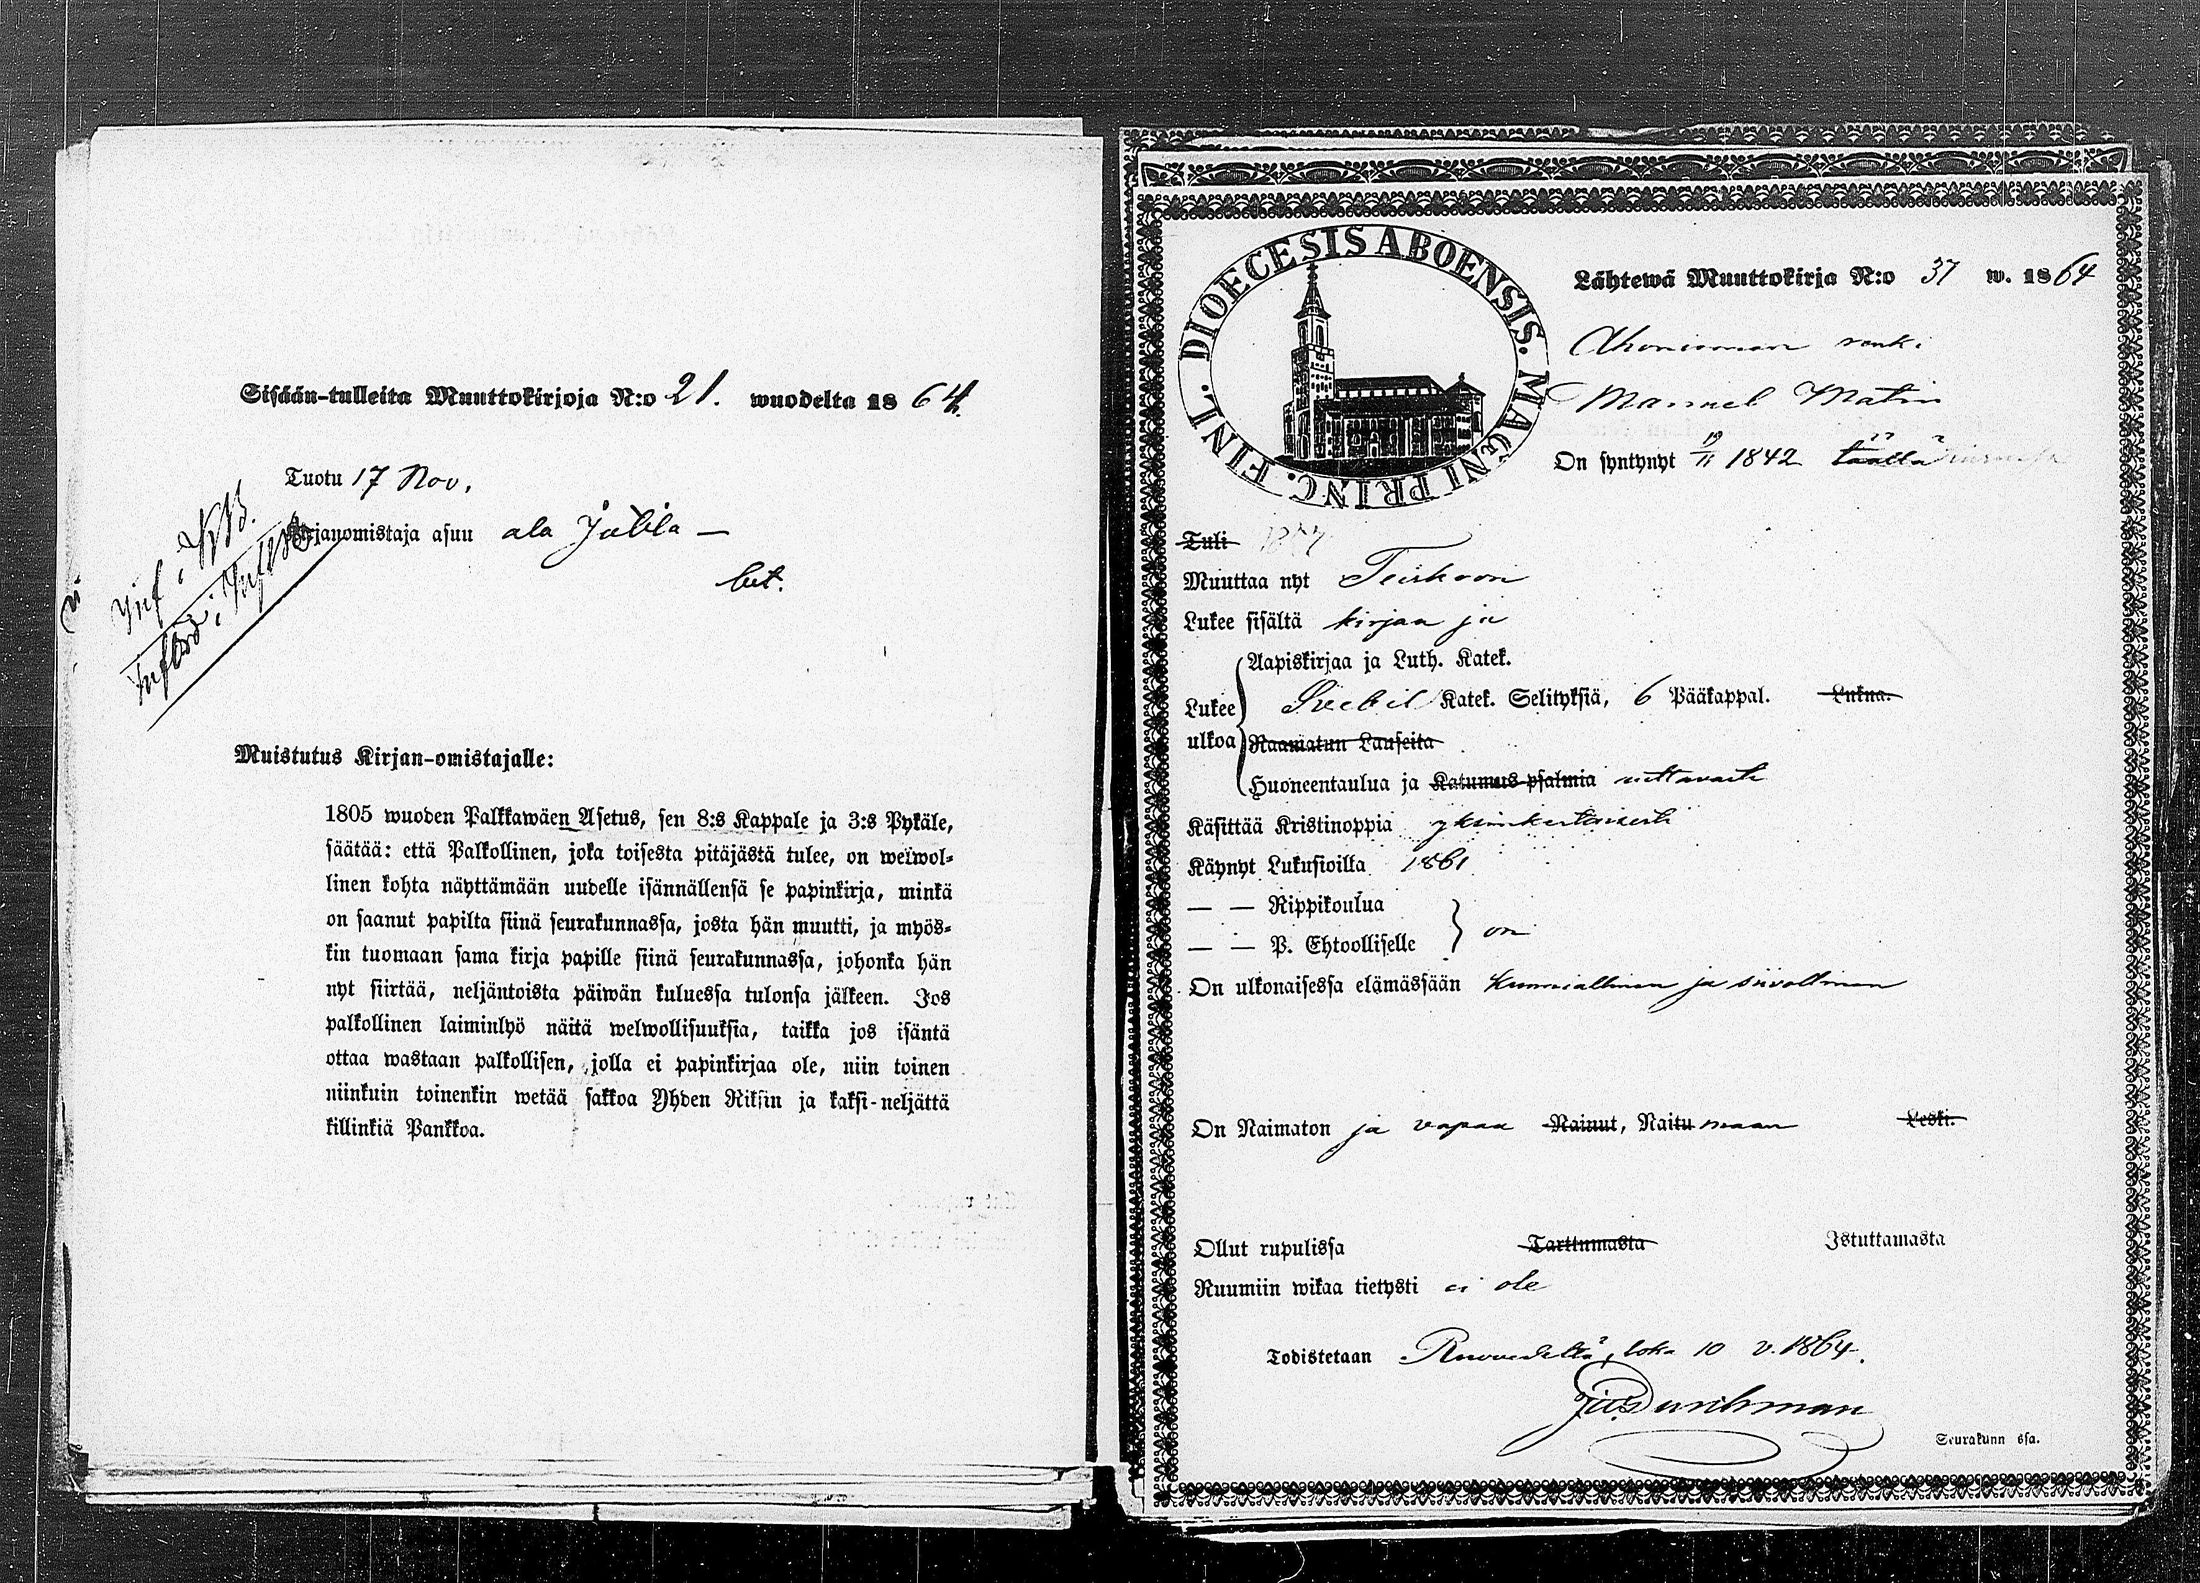 Sisään-tulleita Muuttokirjoja N:o 21. wuodelta 1864.
Tuotu 17 Nov.
Kirjanomistaja asuu ala Jutila —
bet.
Muistutus Kirjan-omistajalle:
1805 wuoden Palkkawäen Asetus, sen 8:s Kappale ja 3:s Pykäle,
säätää: että Palkollinen, joka toisesta pitäjästä tulee, on welwol=
linen kohta näyttämään uudelle isännällensä se papinkirja, minkä
on saanut papilta siinä seurakunnassa, josta hän muutti, ja myös=
kin tuomaan sama kirja papille siinä seurakunnassa, johonka hän
nyt siirtää, neljäntoista päiwän kuluessa tulonsa jälkeen. Jos
palkollinen laiminlyö näitä welwollisuuksia, taikka jos isäntä
ottaa wastaan palkollisen, jolla ei papinkirjaa ole, niin toinen
niinkuin toinenkin wetää sakkoa Yhden Riksin ja kaksi-neljättä
killinkiä Pankkoa.
FINL. DIOECESIS ABOENSIS. MAGNI PRINC.
Lähtewä Muuttokirja N:o 37 w. 1864
renki
Manuel Matin
On syntynyt 19/11 1842 täällä
Tuli
Muuttaa nyt Teiskoon
Lukee sisältä kirjaa ja
Aapiskirjaa ja Luth. Katek.
Lukee ulkoa Svebil Katek. Selityksiä, 6 Pääkappal. Lukua.
Raamatun Lauseita
Huoneentaulua ja Katumus-psalmia auttavasti
Käsittää Kristinoppia yksinkertaisesti
Käynyt Lukusioilla 1861
— — Rippikoulua
— — P. Ehtoolliselle on
On ulkonaisessa elämässään kunniallinen ja siivollinen
On Naimaton ja vapaa Nainut, Naitumaan Leski.
Ollut rupulissa Tarttumasta Istuttamasta
Ruumiin wikaa tietysti ei ole
Todistetaan Ruovedellä, loka 10 v. 1864.
Seurakunn ssa.